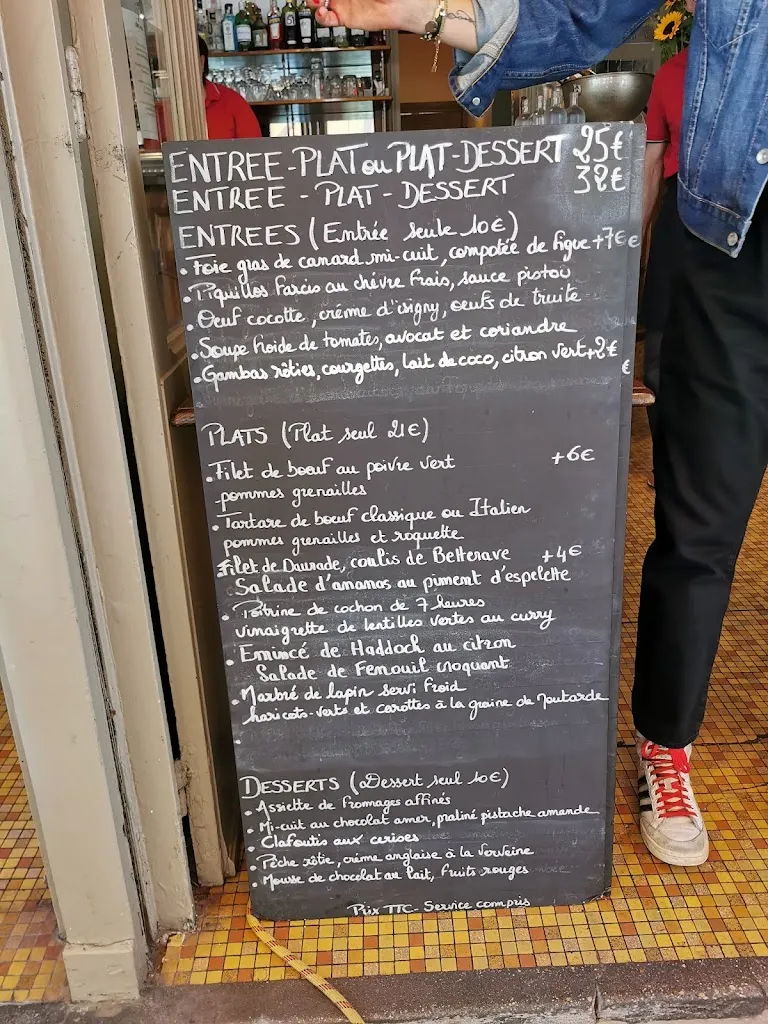 ENTREE-PLAT ou PLAT-DESSERT 25€
ENTREE - PLAT - DESSERT 32€
ENTREES (Entrée seule 10€)
• Foie gras de canard mi-cuit, compotée de figue +7€
• Piquillos farcis au chèvre frais, sauce pistou
• Oeuf cocotte, crème d'isigny, oeufs de truite
• Soupe froide de tomates, avocat et coriandre
• Gambas rôties, courgettes, lait de coco, citron vert +2€
PLATS (Plat seul 21€)
• Filet de boeuf au poivre vert +6€
pommes grenailles
• Tartare de boeuf classique ou Italien
pommes grenailles et roquette
• Filet de Daurade, coulis de Betterave +4€
Salade d'ananas au piment d'espelette
• Poitrine de cochon de 7 heures
vinaigrette de lentilles vertes au curry
• Emincé de Haddock au citron
Salade de Fenouil croquant
• Marbré de lapin servi froid
haricots-verts et carottes à la graine de Moutarde
DESSERTS (Dessert seul 10€)
• Assiette de fromages affinés
• Mi-cuit au chocolat amer, praliné pistache amande
• Clafoutis aux cerises
• Pêche rôtie, crème anglaise à la verveine
• Mousse de chocolat au lait, fruits rouges
Prix TTC - Service compris